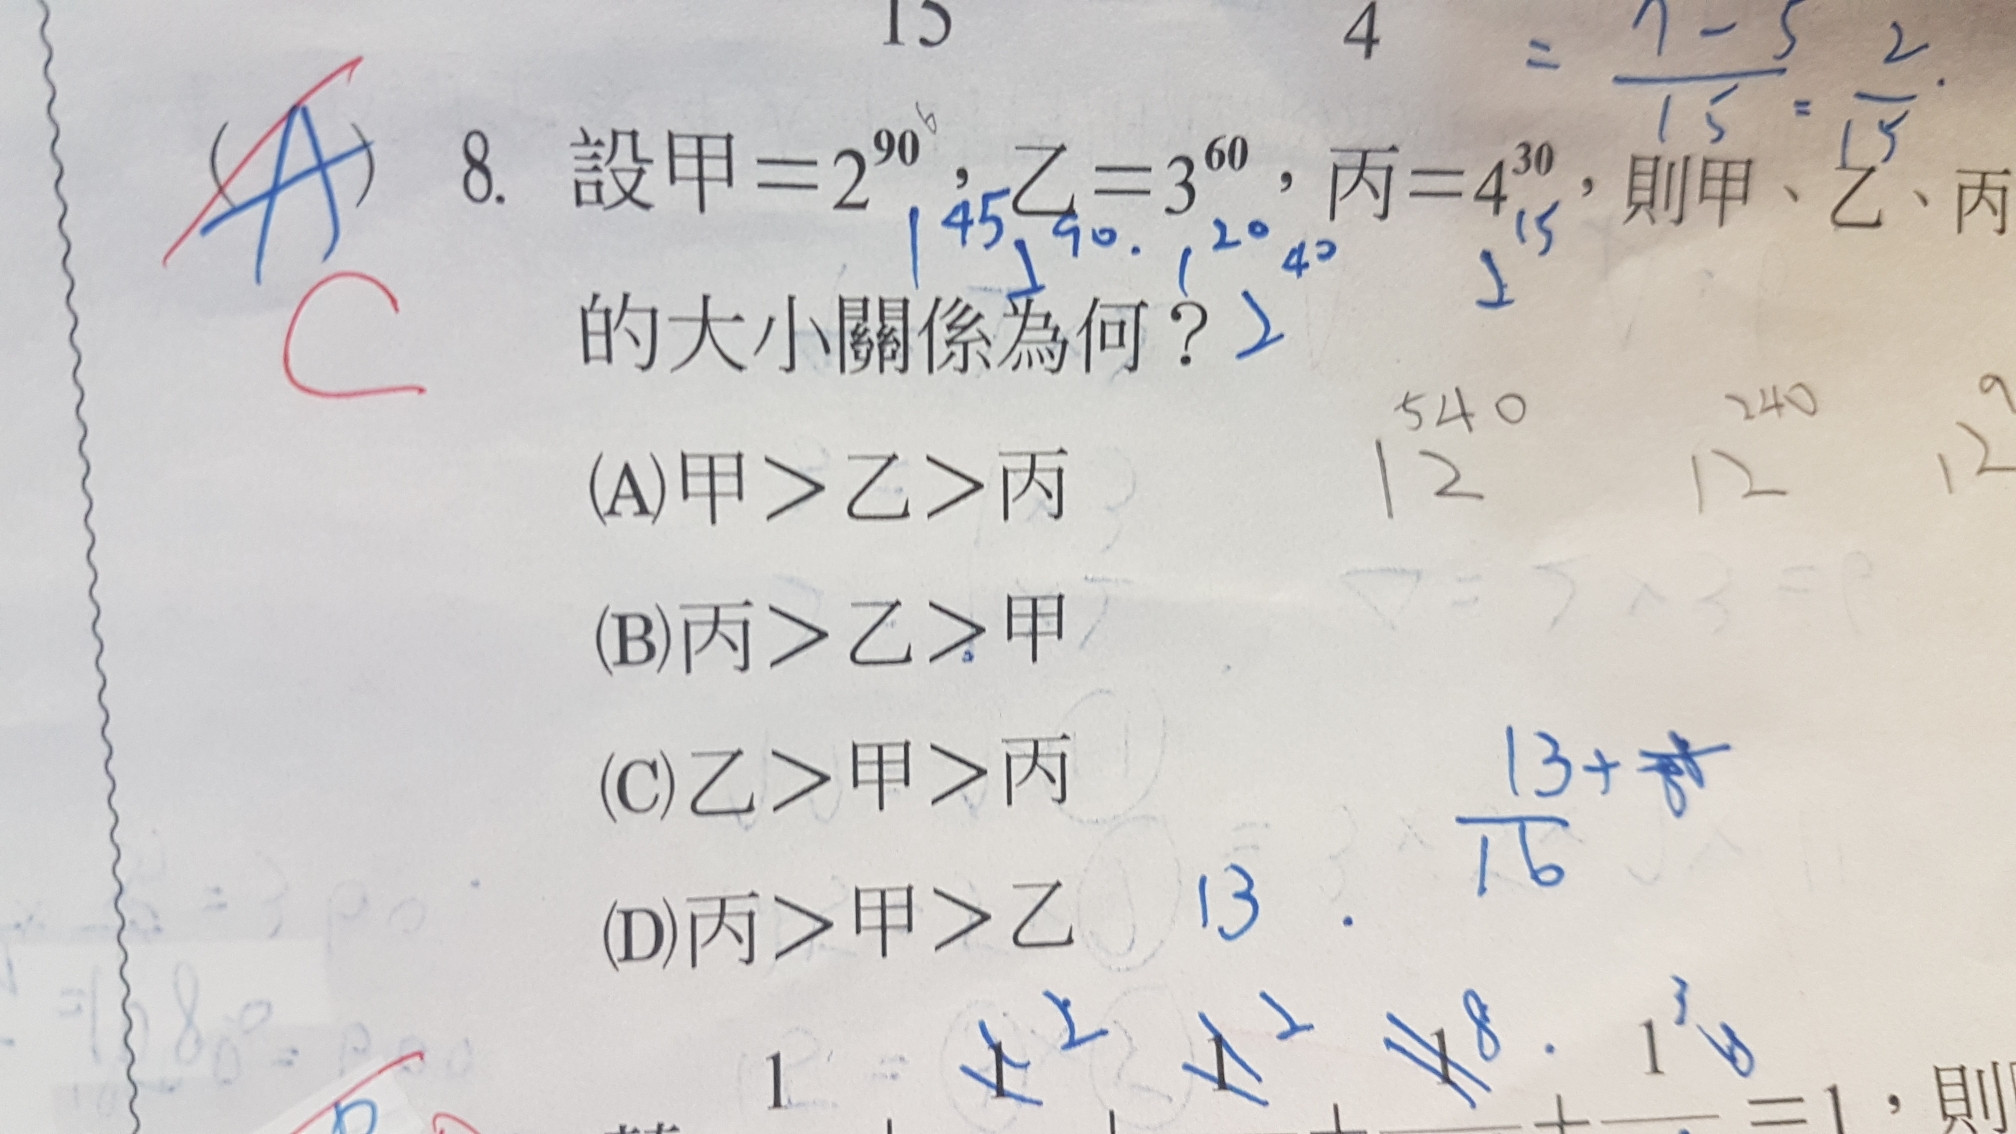 15 4 = 7-5/15 = 2/15.
(A) 8. 設甲=2^90,乙=3^60,丙=4^30,則甲、乙、丙
1^45 2^90. 1^20 2^40 2^15
C 的大小關係為何?
12^540 12^240
(A)甲>乙>丙
(B)丙>乙>甲
(C)乙>甲>丙
13+
16
(D)丙>甲>乙 13
2 2 8 3
1 1 1 1 1
+ + + + =1,則